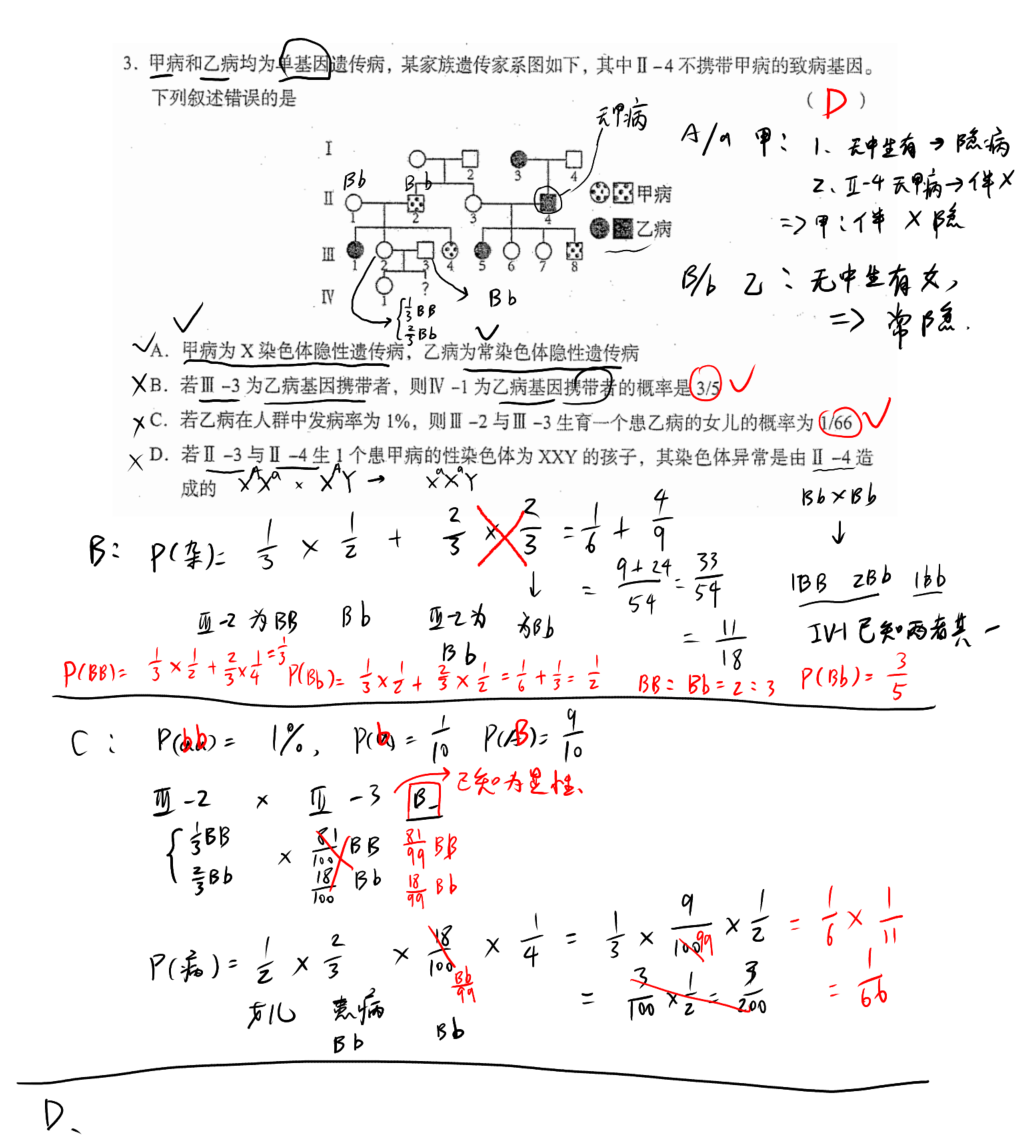 3. 甲病和乙病均为单基因遗传病，某家族遗传家系图如下，其中Ⅱ-4不携带甲病的致病基因。
下列叙述错误的是 （ D ）
无甲病
A/a 甲：1、无中生有→隐病
2、Ⅱ-4无甲病→伴X
=> 甲：伴X隐
B/b 乙：无中生有女，
=> 常隐.
Ⅰ 1 2 3 4
Bb Bb
Ⅱ 1 2 3 4
甲病
乙病
Ⅲ 1 2 3 4 5 6 7 8
Ⅳ 1 ?
Bb
1/3 BB
2/3 Bb
A. 甲病为X染色体隐性遗传病，乙病为常染色体隐性遗传病
B. 若Ⅲ-3为乙病基因携带者，则Ⅳ-1为乙病基因携带者的概率是3/5
C. 若乙病在人群中发病率为1%，则Ⅲ-2与Ⅲ-3生育一个患乙病的女儿的概率为1/66
D. 若Ⅱ-3与Ⅱ-4生1个患甲病的性染色体为XXY的孩子，其染色体异常是由Ⅱ-4造
成的 XᴬXᵃ × XᴬY → XᵃXᵃY
Bb×Bb
↓
1BB 2Bb 1bb
Ⅳ-1已知两者其一
B: P(杂)= 1/3 × 1/2 + 2/3 × 2/3 = 1/6 + 4/9
= (9+24)/54 = 33/54
= 11/18
Ⅲ-2为BB Bb Ⅲ-2为Bb 为Bb
P(BB)= 1/3×1/2+2/3×1/4=1/3 P(Bb)= 1/3×1/2+2/3×1/2=1/6+1/3=1/2 BB:Bb=2:3 P(Bb)=3/5
C: P(bb)= 1%, P(b)=1/10 P(B)=9/10
Ⅲ-2 × Ⅲ-3 B_ 已知为显性、
1/3 BB × 81/100 BB 81/99 BB
2/3 Bb 18/100 Bb 18/99 Bb
P(病)= 1/2 × 2/3 × 18/100 × 1/4 = 1/3 × 9/100 99 × 1/2 = 1/6 × 1/11
= 3/100 × 1/2 = 3/200 = 1/66
女儿 患病 Bb
Bb
D、